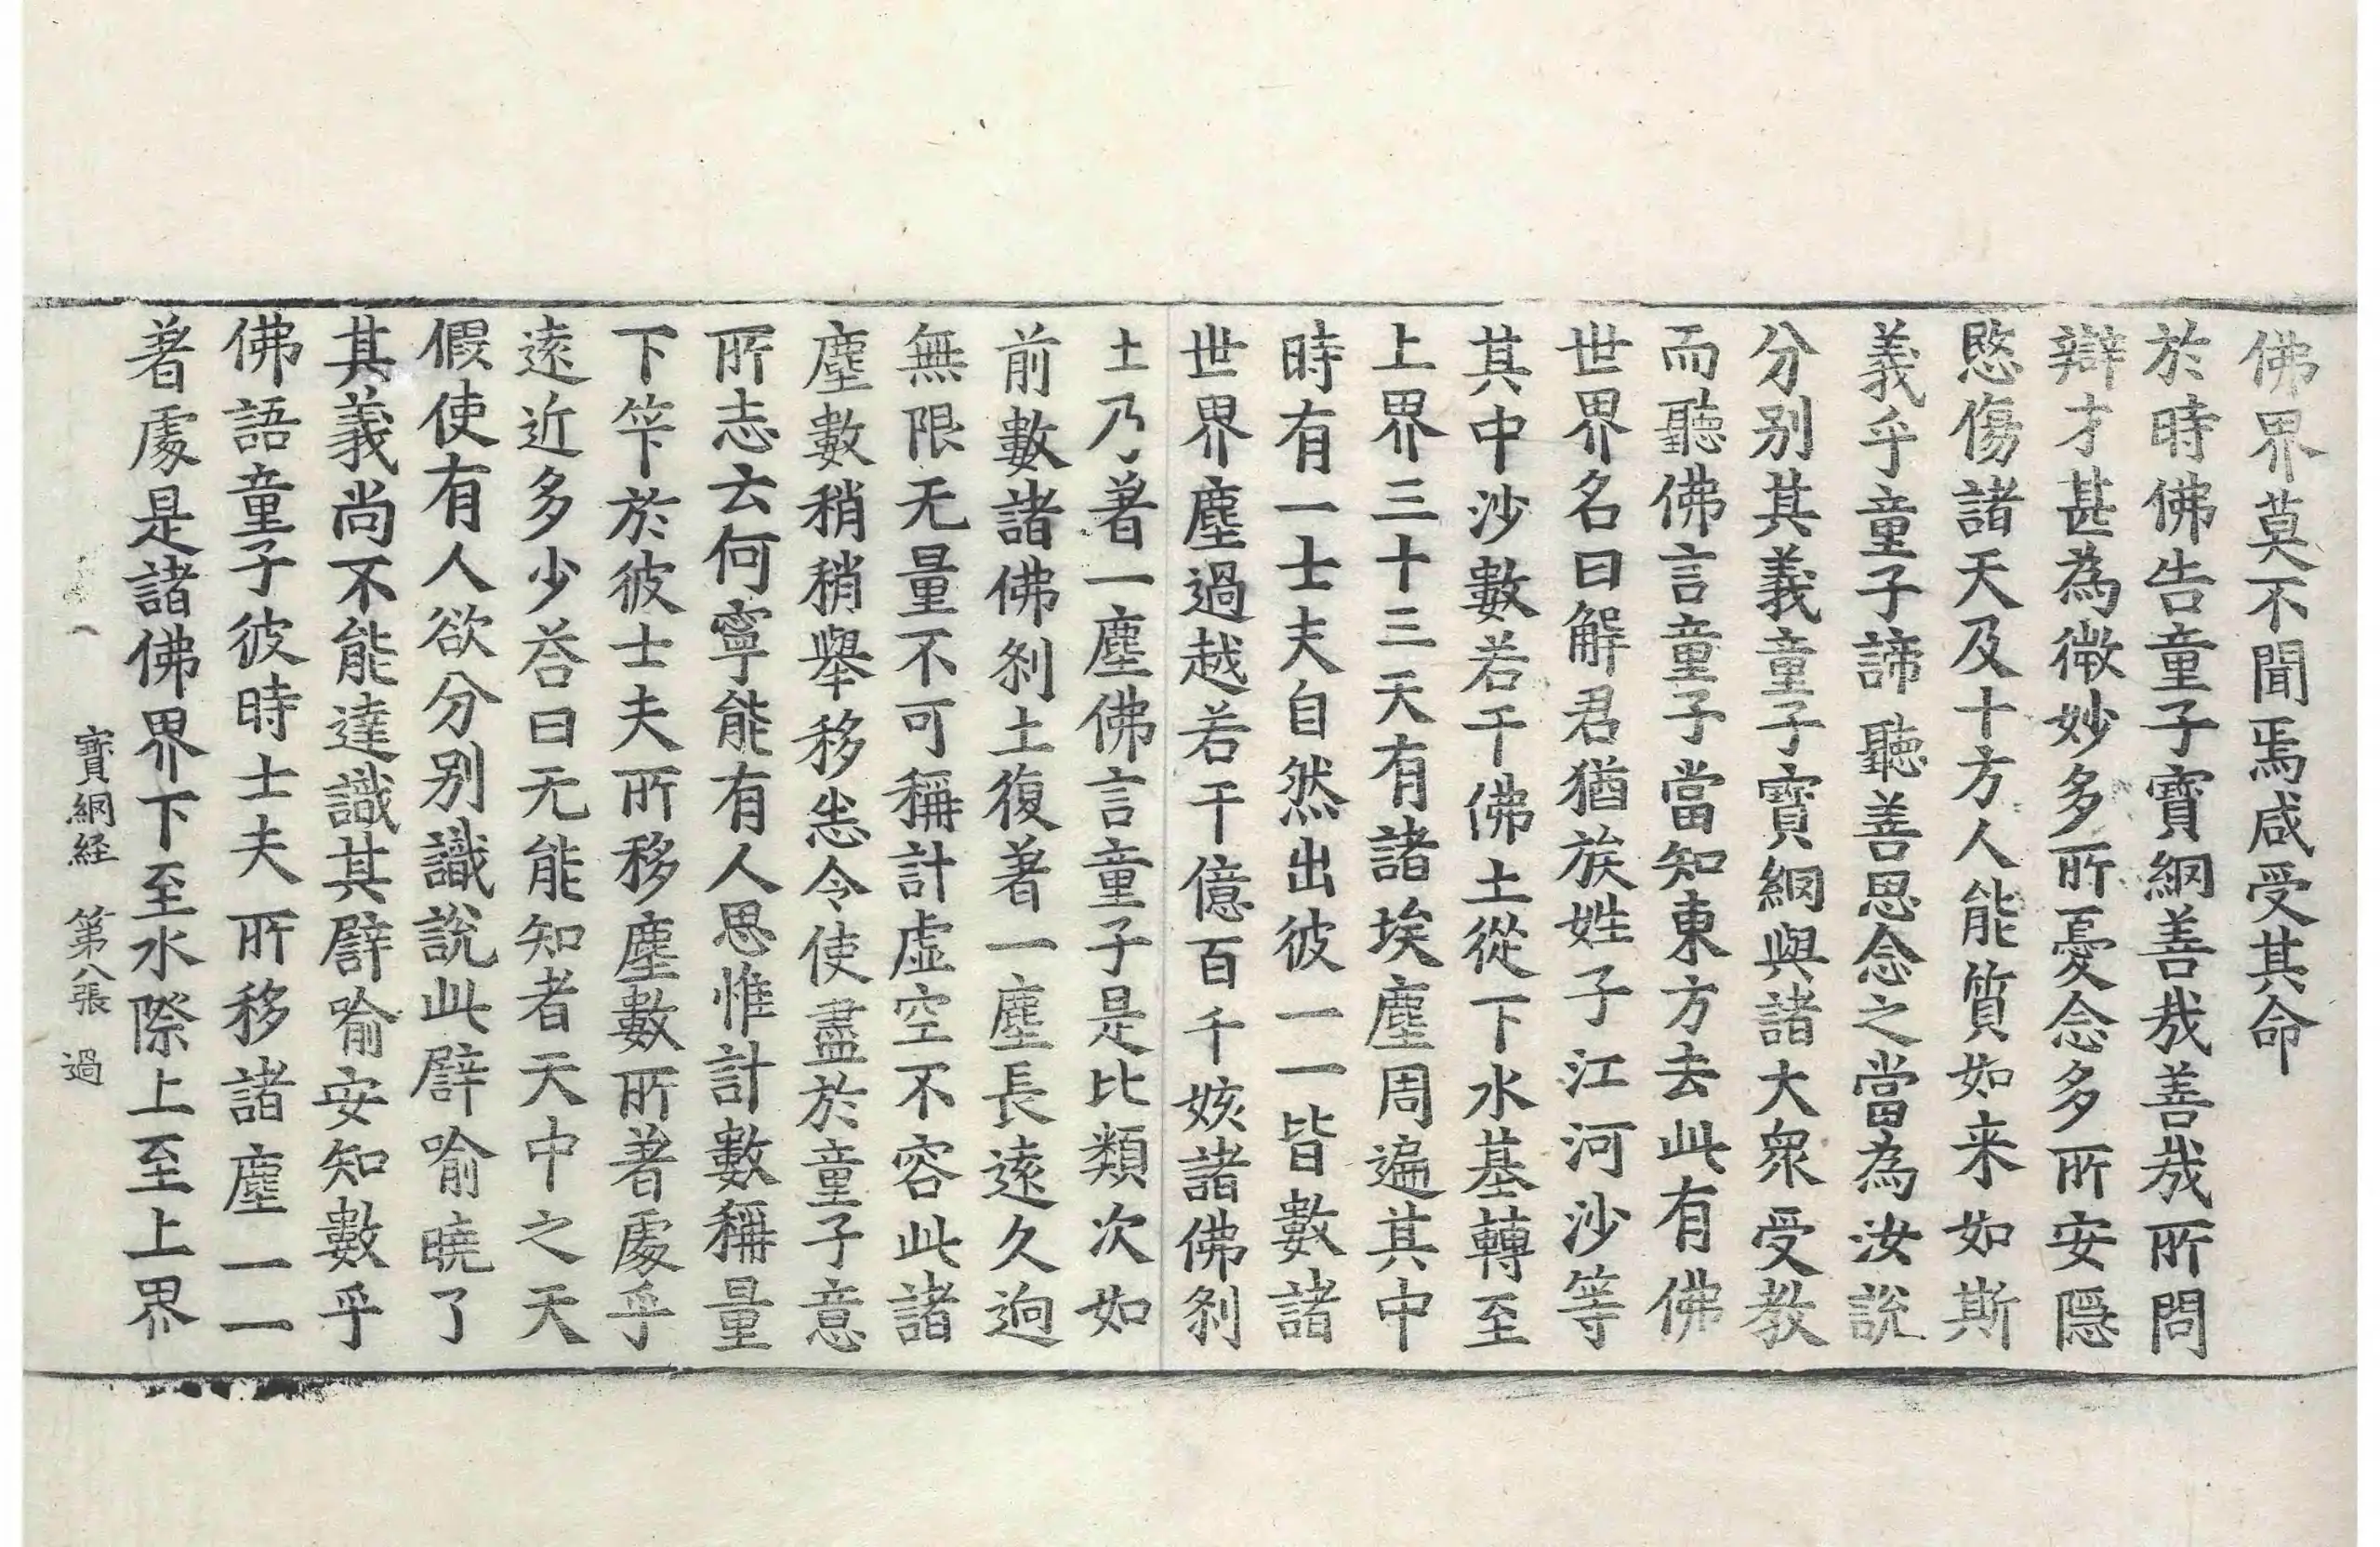 佛界莫不聞焉咸受其命
於時佛告童子寶網善哉善哉所問
辯才甚為微妙多所憂念多所安隱
愍傷諸天及十方人能質如来如斯
義乎童子諦聽善思念之當為汝說
分別其義童子寶網與諸大衆受教
而聽佛言童子當知東方去此有佛
世界名曰解君猶族姓子江河沙等
其中沙數若干佛土從下水基轉至
上界三十三天有諸埃塵周遍其中
時有一士夫自然出彼一一皆數諸
世界塵過越若干億百千姟諸佛刹
土乃著一塵佛言童子是比類次如
前數諸佛刹土復著一塵長遠久逈
無限无量不可稱計虛空不容此諸
塵數稍稍舉移恙令使盡於童子意
所志云何寧能有人思惟計數稱量
下筭於彼士夫所移塵數所著處乎
遠近多少荅曰无能知者天中之天
假使有人欲分別識說此譬喻曉了
其義尚不能達識其譬喻安知數乎
佛語童子彼時士夫所移諸塵一一
著處是諸佛界下至水際上至上界
寶網経 第八張 過